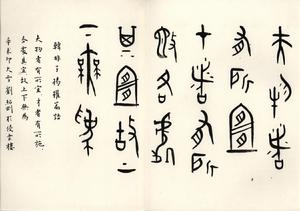 夫物者
有所宜
才者有所
施各處
其宜故上
下無為
韓非子揚權篇語
夫物者有所宜才者有所施
各處其宜故上下無為
大雪劉紹剛於樓